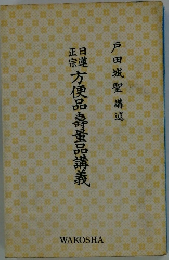 戸田城聖 講述
日蓮正宗 方便品壽量品講義
WAKOSHA